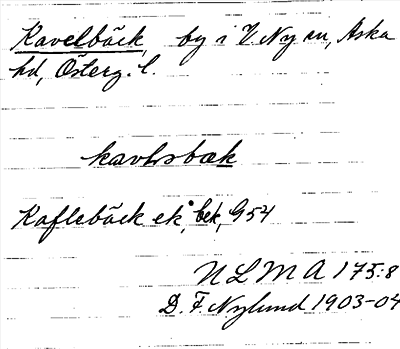 Kavelbäck, by i V. Ny sn, Aska
hd, Österg. l.
kavlsbæk
Kaflebäck ek, bek, G 54
NLMA 175:8
D. F. Nylund 1903-04